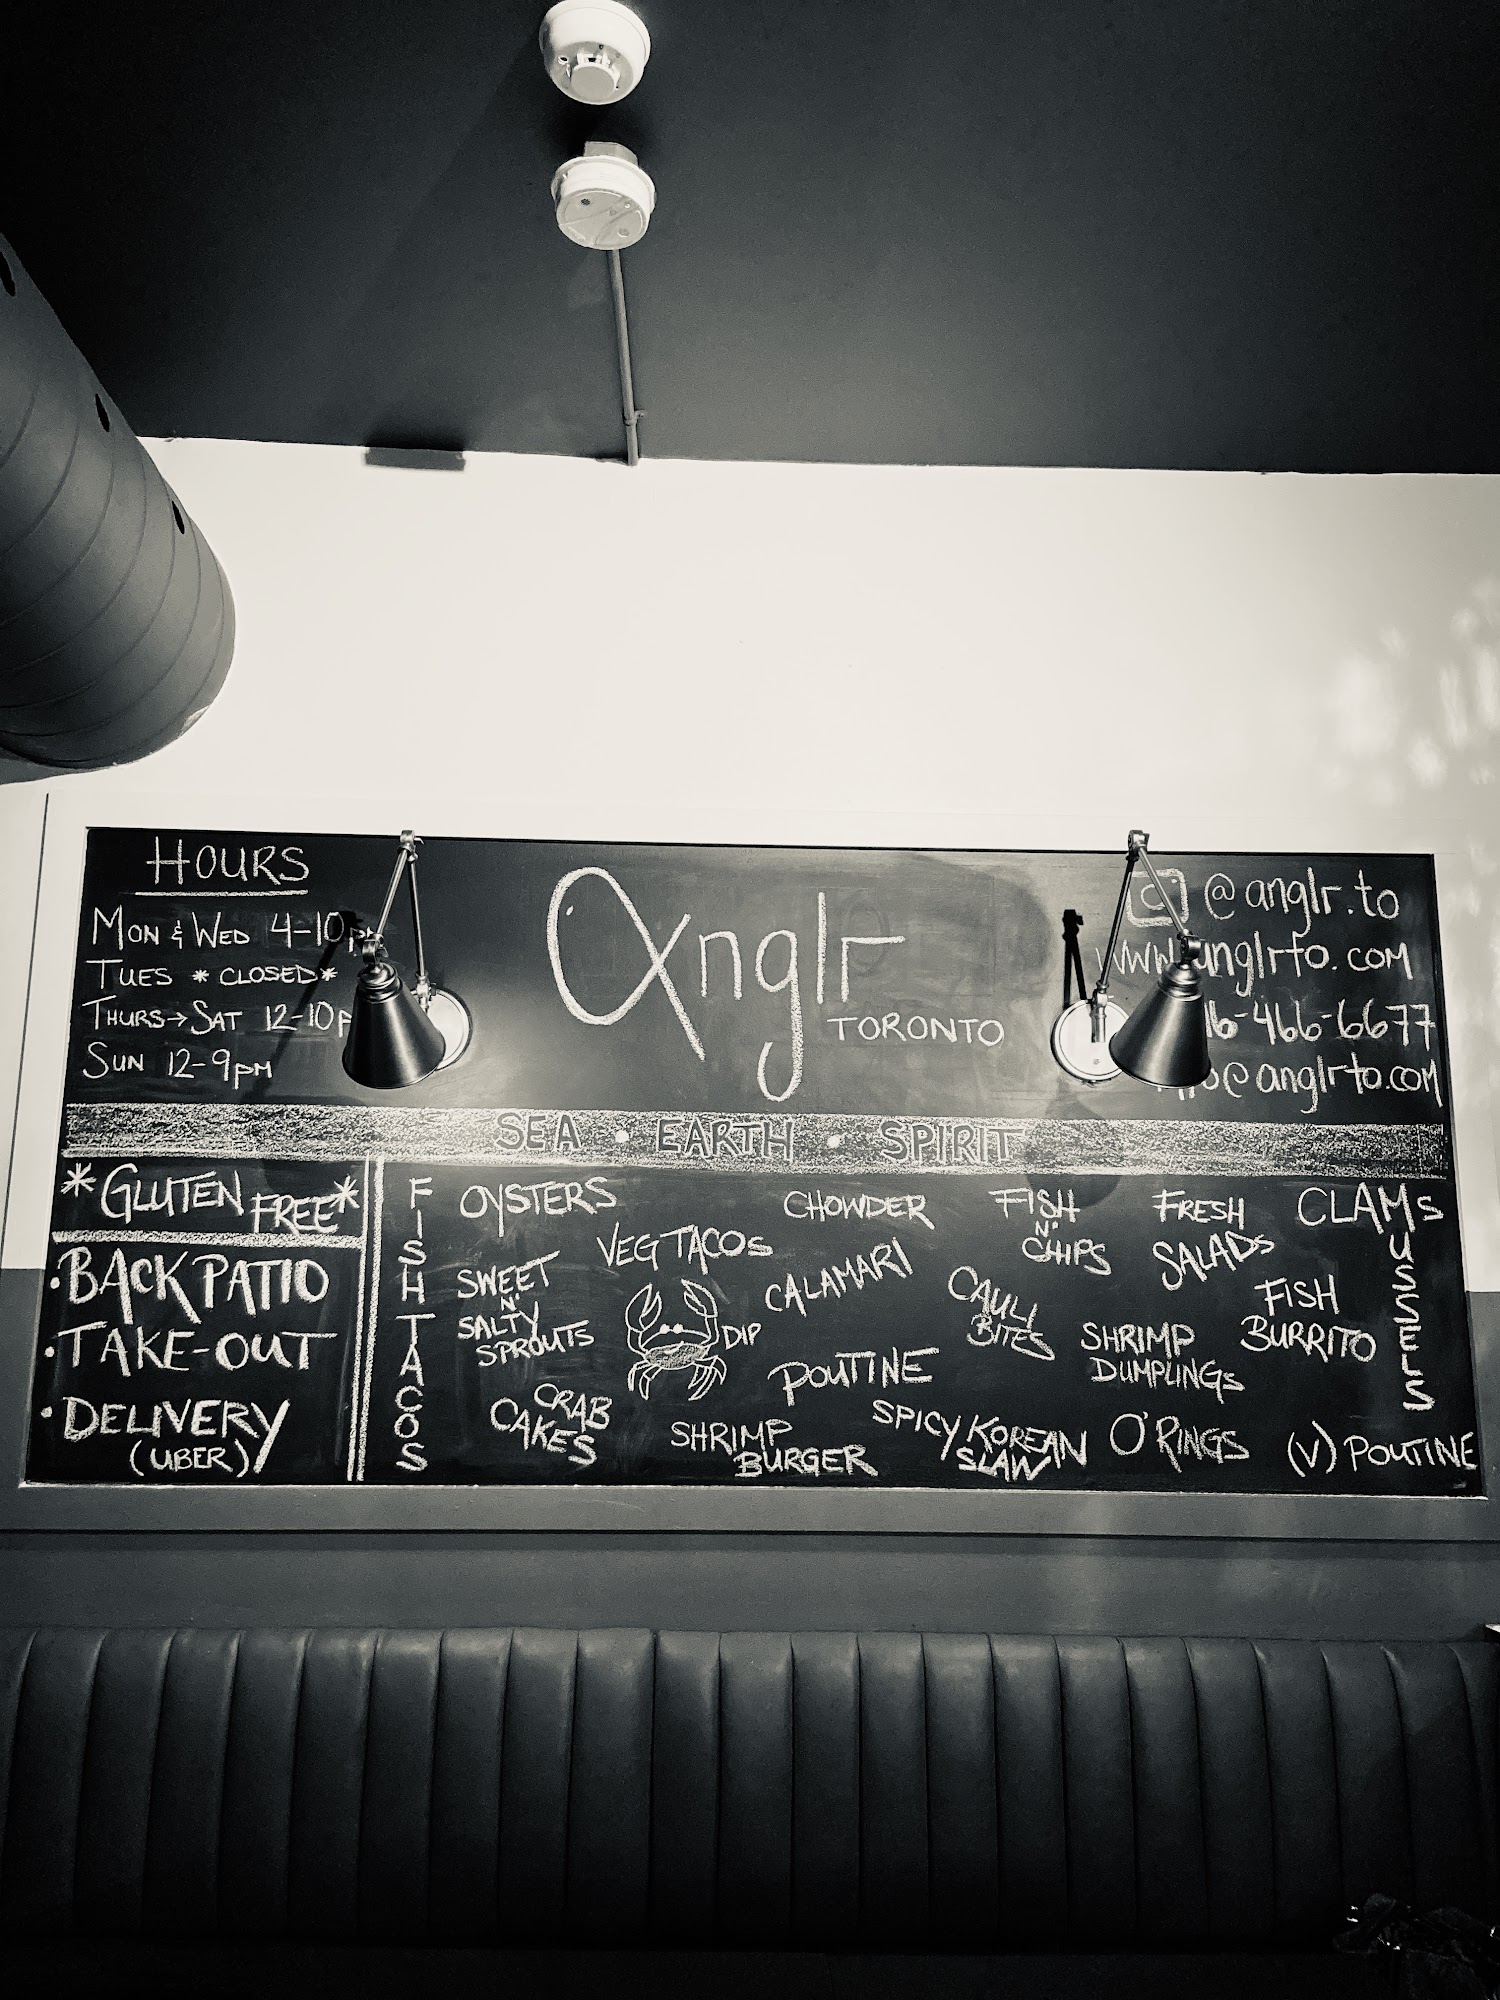 HOURS
MON & WED 4-10pm
TUES * CLOSED *
THURS→SAT 12-10P
SUN 12-9pm
anglr
TORONTO
@anglr.to
www.anglrto.com
16-466-6677
@anglrto.com
SEA • EARTH • SPIRIT
*GLUTEN FREE*
•BACK PATIO
•TAKE-OUT
•DELIVERY
(UBER)
FISH TACOS
OYSTERS
VEG TACOS
SWEET
N'
SALTY
SPROUTS
DIP
CRAB
CAKES
CHOWDER
CALAMARI
POUTINE
SHRIMP
BURGER
FISH
N'
CHIPS
CAULI
BITES
SPICY KOREAN
SLAW
FRESH
SALADS
SHRIMP
DUMPLINGS
O'RINGS
FISH
BURRITO
CLAMS
MUSSELS
(V) POUTINE